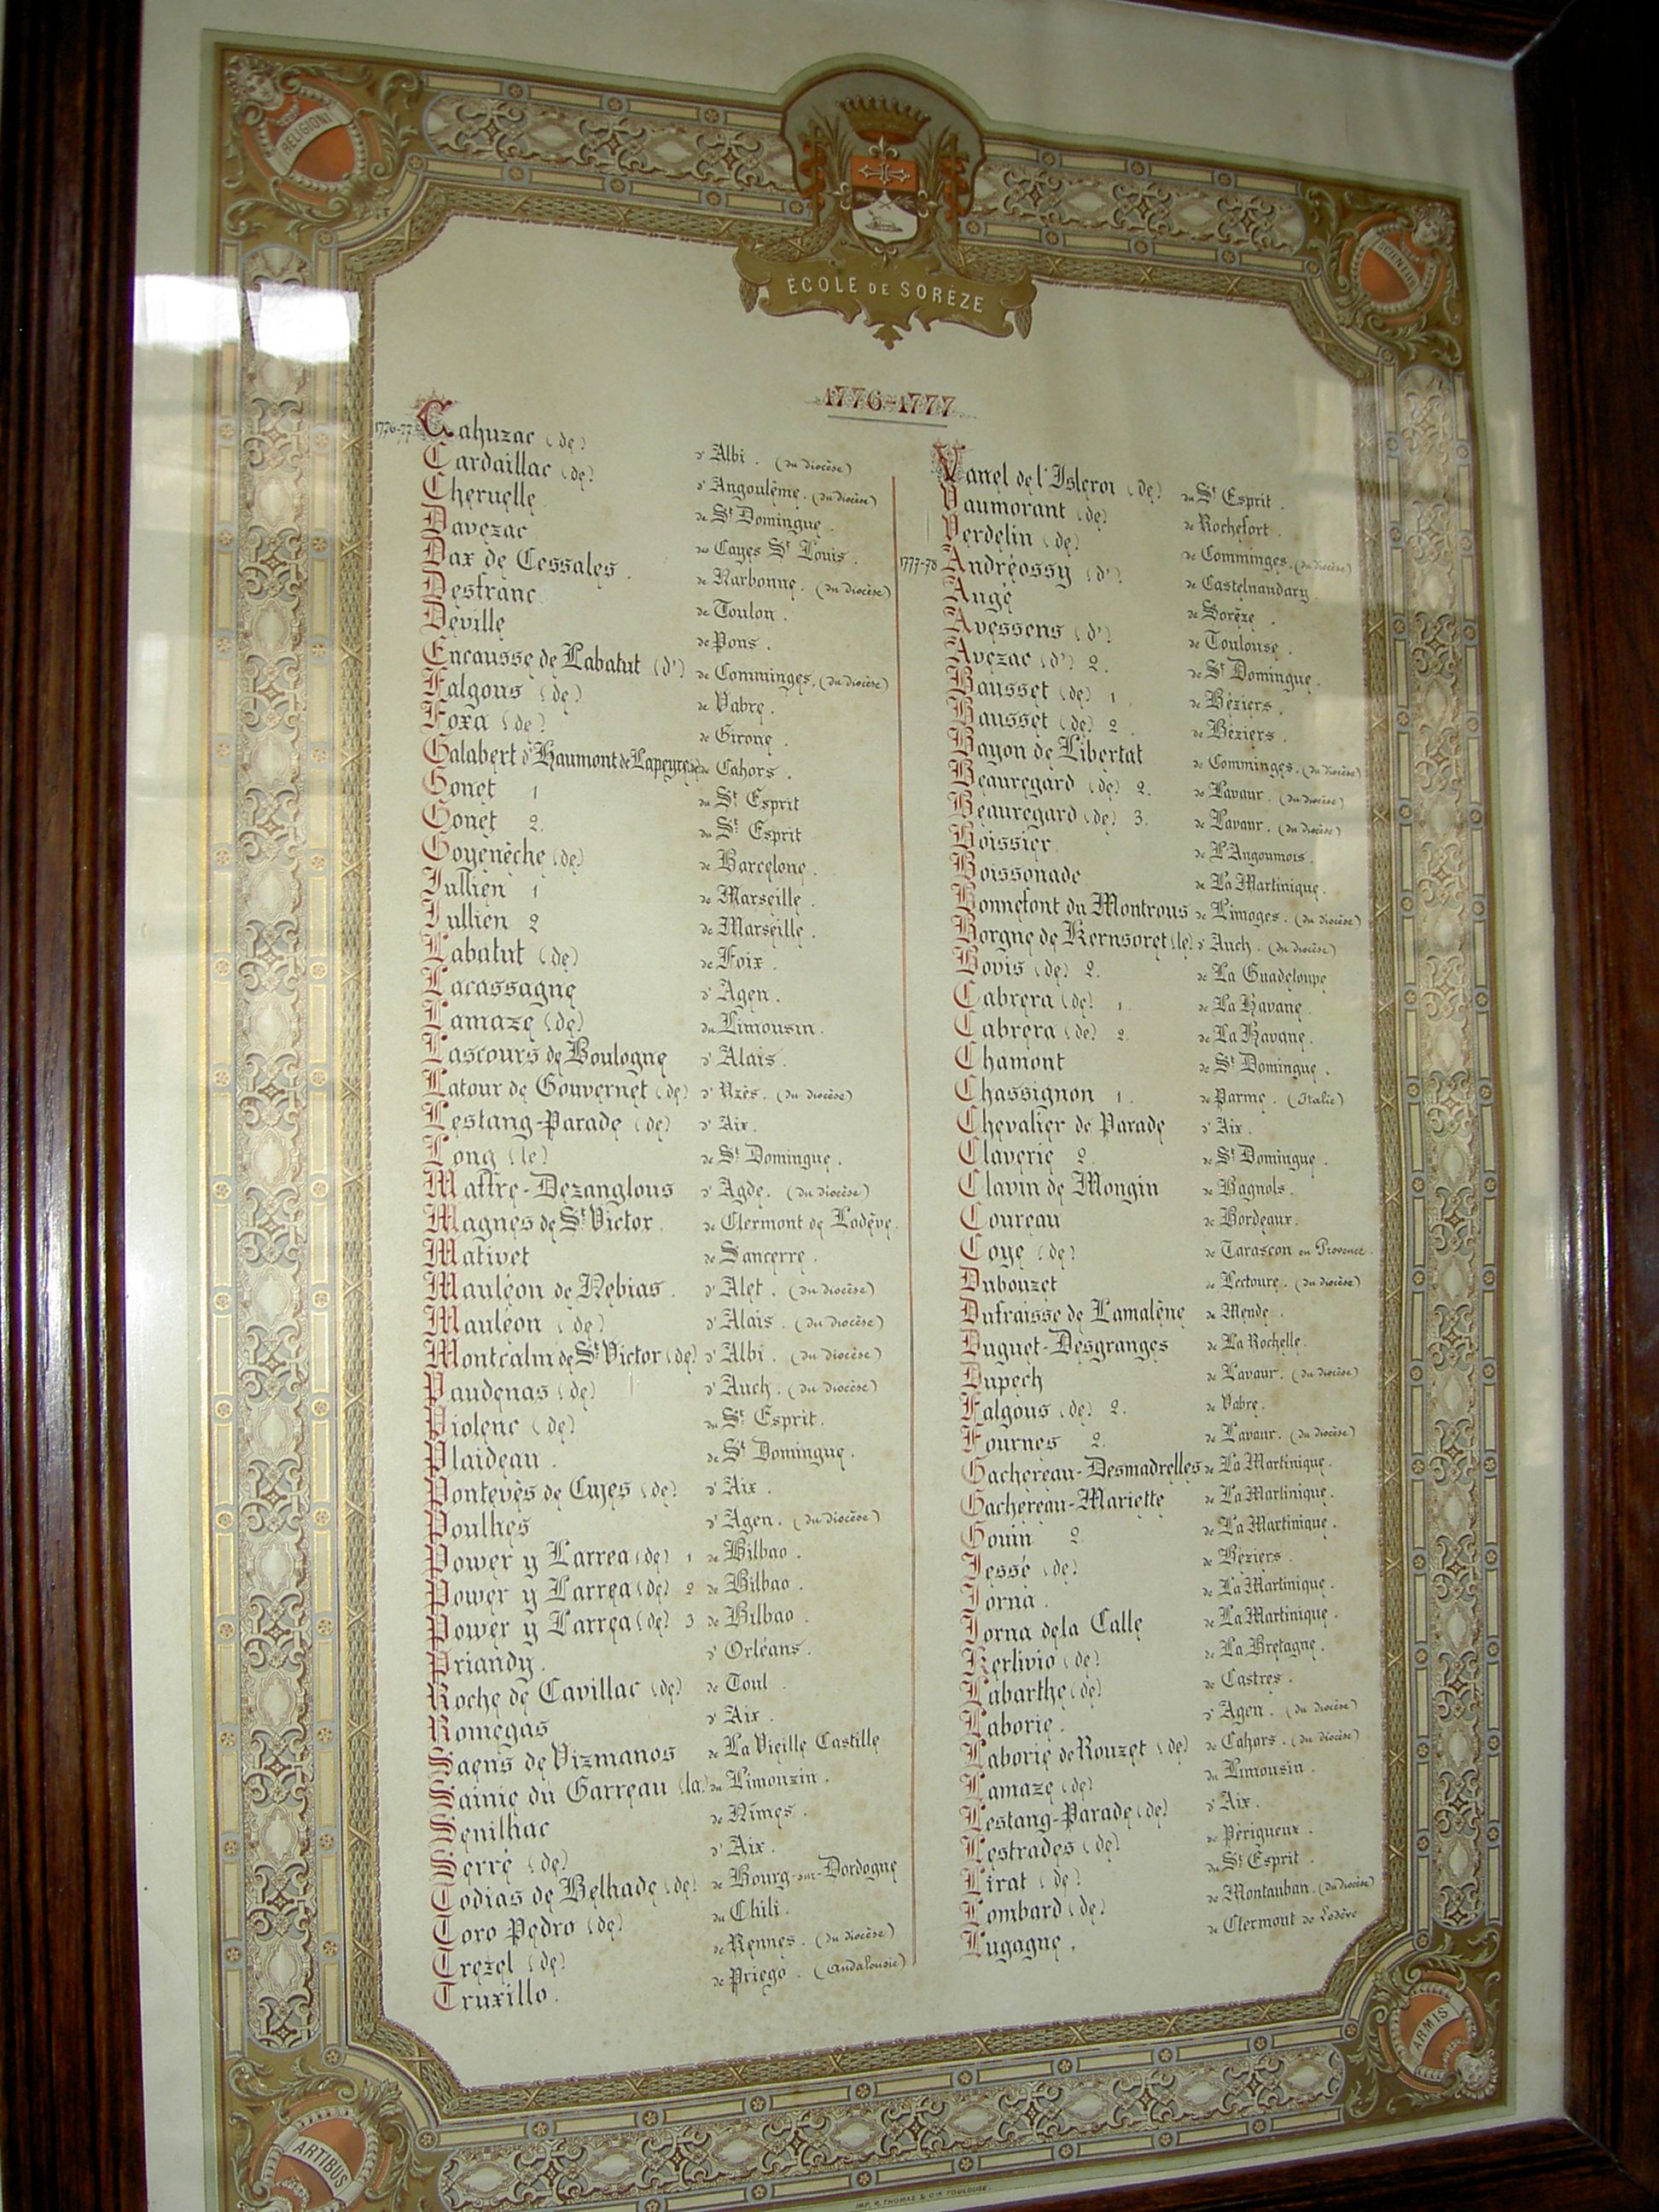 RELIGIONI
SCIENTIIS
ÉCOLE DE SORÈZE
1776-1777
1776-77 Cahuzac (de) d'Albi. (du diocèse)
Cardaillac (de) d'Angoulême. (du diocèse)
Cheruelle de St Domingue.
Davezac de Cayes St Louis.
Dax de Cessales. de Narbonne. (du diocèse)
Desfranc de Toulon.
Deville de Pons.
Encausse de Labatut (d') de Comminges. (du diocèse)
Falgous (de) de Vabre.
Foxa (de) de Girone.
Galabert d'Haumont de Lapeyre de Cahors.
Gonet 1 du St Esprit
Gonet 2. du St Esprit
Goyenèche (de) de Barcelone.
Jullien 1 de Marseille.
Jullien 2 de Marseille.
Labatut (de) de Foix.
Lacassagne d'Agen.
Lamaze (de) du Limousin.
Lascours de Boulogne d'Alais.
Latour de Gouvernet (de) d'Uzès. (du diocèse)
Lestang-Parade (de) d'Aix.
Long (le) de St Domingue.
Maffre-Dezanglous d'Agde. (du diocèse)
Magnes de St Victor. de Clermont de Lodève.
Mativet de Sancerre.
Mauléon de Nebias. d'Alet. (du diocèse)
Mauléon (de) d'Alais. (du diocèse)
Montcalm de St Victor (de) d'Albi. (du diocèse)
Paudenas (de) 1 d'Auch. (du diocèse)
Piolenc (de) du St Esprit.
Plaideau. de St Domingue.
Pontevès de Cujes (de) d'Aix.
Poulhes d'Agen. (du diocèse)
Power y Larrea (de) 1 de Bilbao.
Power y Larrea (de) 2 de Bilbao.
Power y Larrea (de) 3 de Bilbao.
Priandy. d'Orléans.
Roche de Cavillac (de) de Toul.
Romegas d'Aix.
Saens de Vizmanos de La Vieille Castille
Sainie du Garreau (la) du Limouzin.
Senilhac de Nîmes.
Serre (de) d'Aix.
Todias de Belhade (de) de Bourg-sur-Dordogne
Toro Pedro (de) du Chili.
Trezel (de) de Rennes. (du diocèse)
Truxillo. de Priego. (Andalousie)
Vanel de l'Isleroi (de) du St Esprit.
Vaumorant (de) de Rochefort.
Verdelin (de) de Comminges. (du diocèse)
1777-78 Andréossy (d') de Castelnaudary.
Augé de Sorèze.
Avessens (d') de Toulouse.
Avezac (d') 2. de St Domingue.
Bausset (de) 1 de Béziers.
Bausset (de) 2. de Béziers.
Bayon de Libertat de Comminges. (du diocèse)
Beauregard (de) 2. de Lavaur. (du diocèse)
Beauregard (de) 3. de Lavaur. (du diocèse)
Boissier de L'Angoumois.
Boissonade de La Martinique.
Bonnefont du Montrous de Limoges. (du diocèse)
Borgne de Kernsoret (le) d'Auch. (du diocèse)
Bovis (de) 2. de La Guadeloupe
Cabrera (de) 1. de La Havane.
Cabrera (de) 2. de La Havane.
Chamont de St Domingue.
Chassignon 1. de Parme. (Italie)
Chevalier de Parade d'Aix.
Claverie 2. de St Domingue.
Clavin de Mongin de Bagnols.
Coureau de Bordeaux.
Coye (de) de Tarascon en Provence.
Dubouzet de Lectoure. (du diocèse)
Dufraisse de Lamalène de Mende.
Duguet-Desgranges de La Rochelle.
Dupech de Lavaur. (du diocèse)
Falgous (de) 2. de Vabre.
Fournes 2. de Lavaur. (du diocèse)
Gachereau-Desmadrelles de La Martinique.
Gachereau-Mariette de La Martinique.
Gouin 2 de La Martinique.
Jessé (de) de Béziers.
Jorna. de La Martinique.
Jorna de la Calle de La Martinique.
Kerlivio (de) de La Bretagne.
Labarthe (de) de Castres.
Laborie. d'Agen. (du diocèse)
Laborie de Rouzet (de) de Cahors. (du diocèse)
Lamaze (de) du Limousin.
Lestang-Parade (de) d'Aix.
Lestrades (de) de Périgueux.
Lirat (de) du St Esprit.
Lombard (de) de Montauban. (du diocèse)
Lugagne. de Clermont de Lodève
ARTIBUS
ARMIS
IMP. R. THOMAS & CIE TOULOUSE.